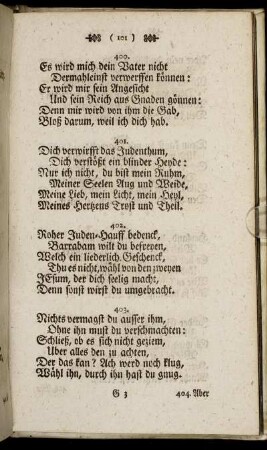 ( 101 )
400.
Es wird mich dein Vater nicht
Dermahleinst verwerffen können:
Er wird mir sein Angesicht
Und sein Reich aus Gnaden gönnen:
Denn mir wird von ihm die Gab,
Bloß darum, weil ich dich hab.
401.
Dich verwirfft das Judenthum,
Dich verstößt ein blinder Heyde:
Nur ich nicht, du bist mein Ruhm,
Meiner Seelen Aug und Weide,
Meine Lieb, mein Licht, mein Heyl,
Meines Hertzens Trost und Theil.
402.
Roher Juden-Hauff bedenck,
Barrabam wilt du befreyen,
Welch ein liederlich Geschenck,
Thu es nicht, wähl von den zweyen
JEsum, der dich seelig macht,
Denn sonst wirst du umgebracht.
403.
Nichts vermagst du ausser ihm,
Ohne ihn must du verschmachten:
Schließ, ob es sich nicht geziem,
Uber alles den zu achten,
Der das kan? Ach werd noch klug,
Wähl ihn, durch ihn hast du gnug.
G 3 404. Aber